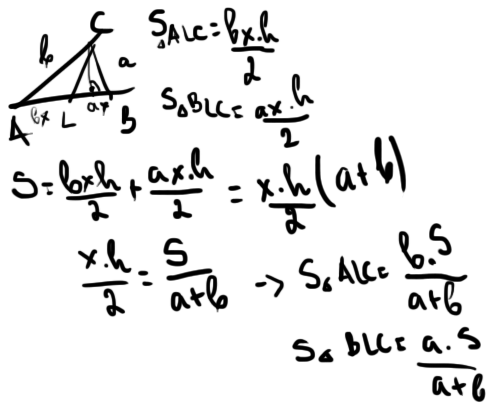 C
b
a
A
bx
L
ax
B
S△ALC = bx.h/2
S△BLC = ax.h/2
S = bxh/2 + ax.h/2 = x.h/2 (a+b)
x.h/2 = S/(a+b) -> S△ALC = b.S/(a+b)
S△BLC = a.S/(a+b)